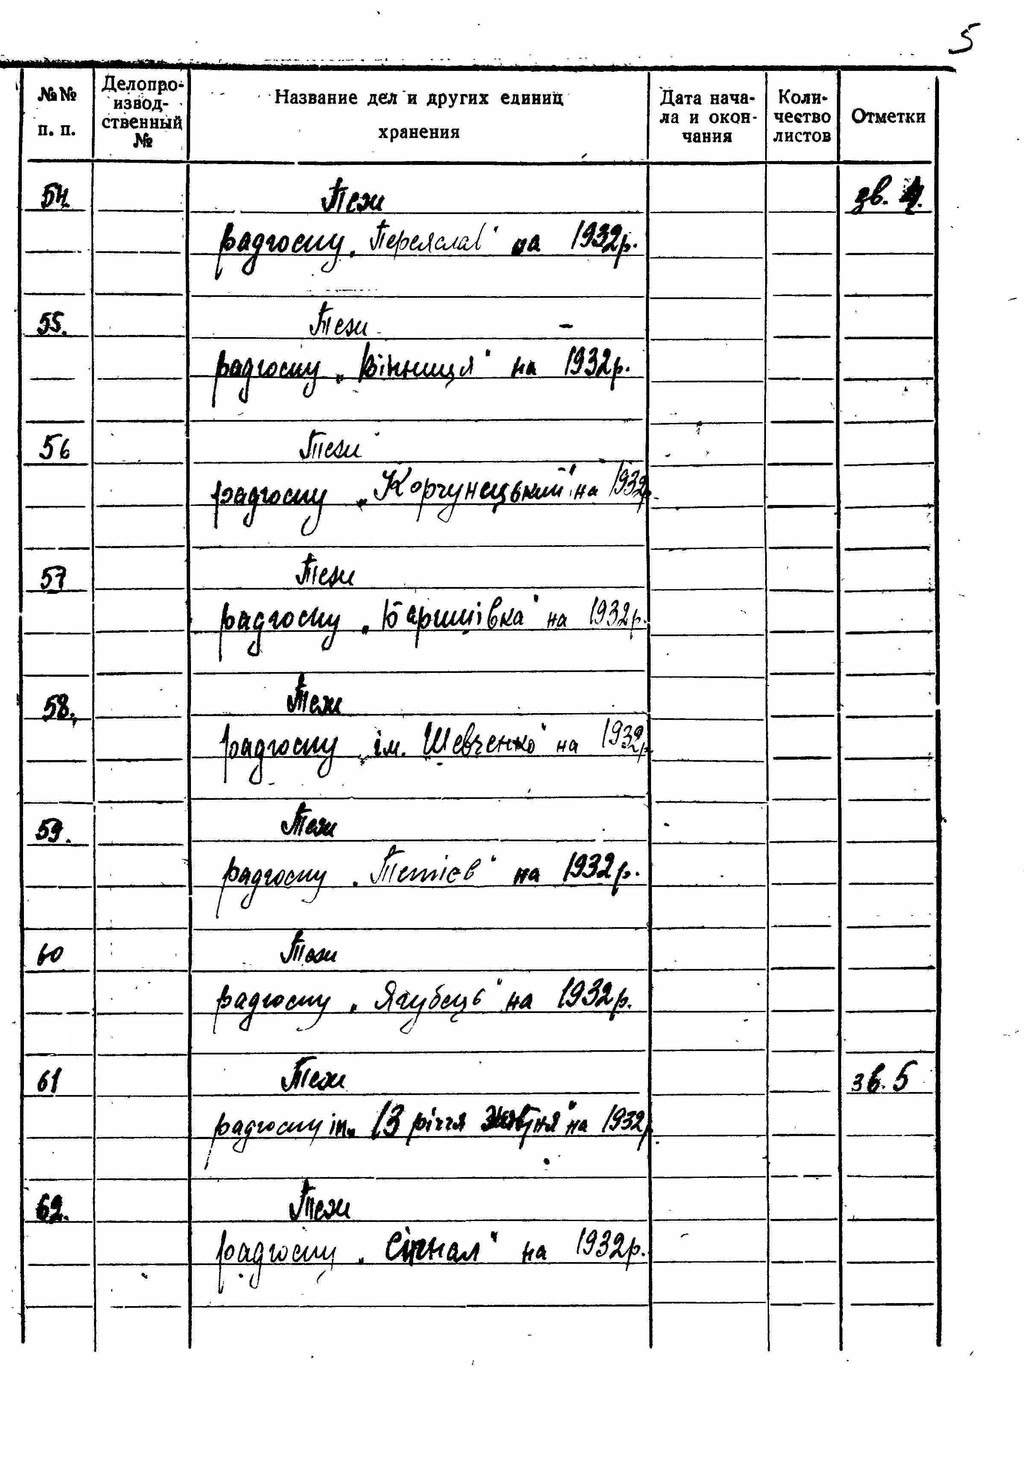 5
№№ п. п.
Делопро-
извод-
ственный
№
Название дел и других единиц
хранения
Дата нача-
ла и окон-
чания
Коли-
чество
листов
Отметки
54. Тези зв. 4.
радгоспу „Переяслав" на 1932р.
55. Тези
радгоспу „Вінниця" на 1932р.
56 Тези
радгоспу „Корчунецький" на 1932р
57 Тези
радгоспу „Баришівка" на 1932р.
58. Тези
радгоспу ім. Шевченко" на 1932р
59. Тези
радгоспу „Тетієв" на 1932р.
60 Тези
радгоспу „Ягубець" на 1932р.
61 Тези зв. 5
радгоспу ім. 13 річчя Жовтня" на 1932р
62. Тези
радгоспу „Сігнал" на 1932р.